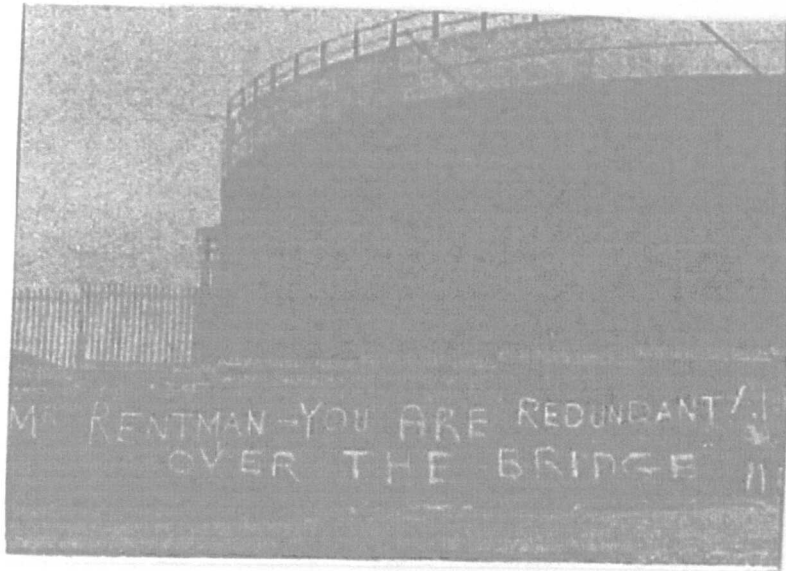 MR RENTMAN - YOU ARE REDUNDANT
OVER THE BRIDGE